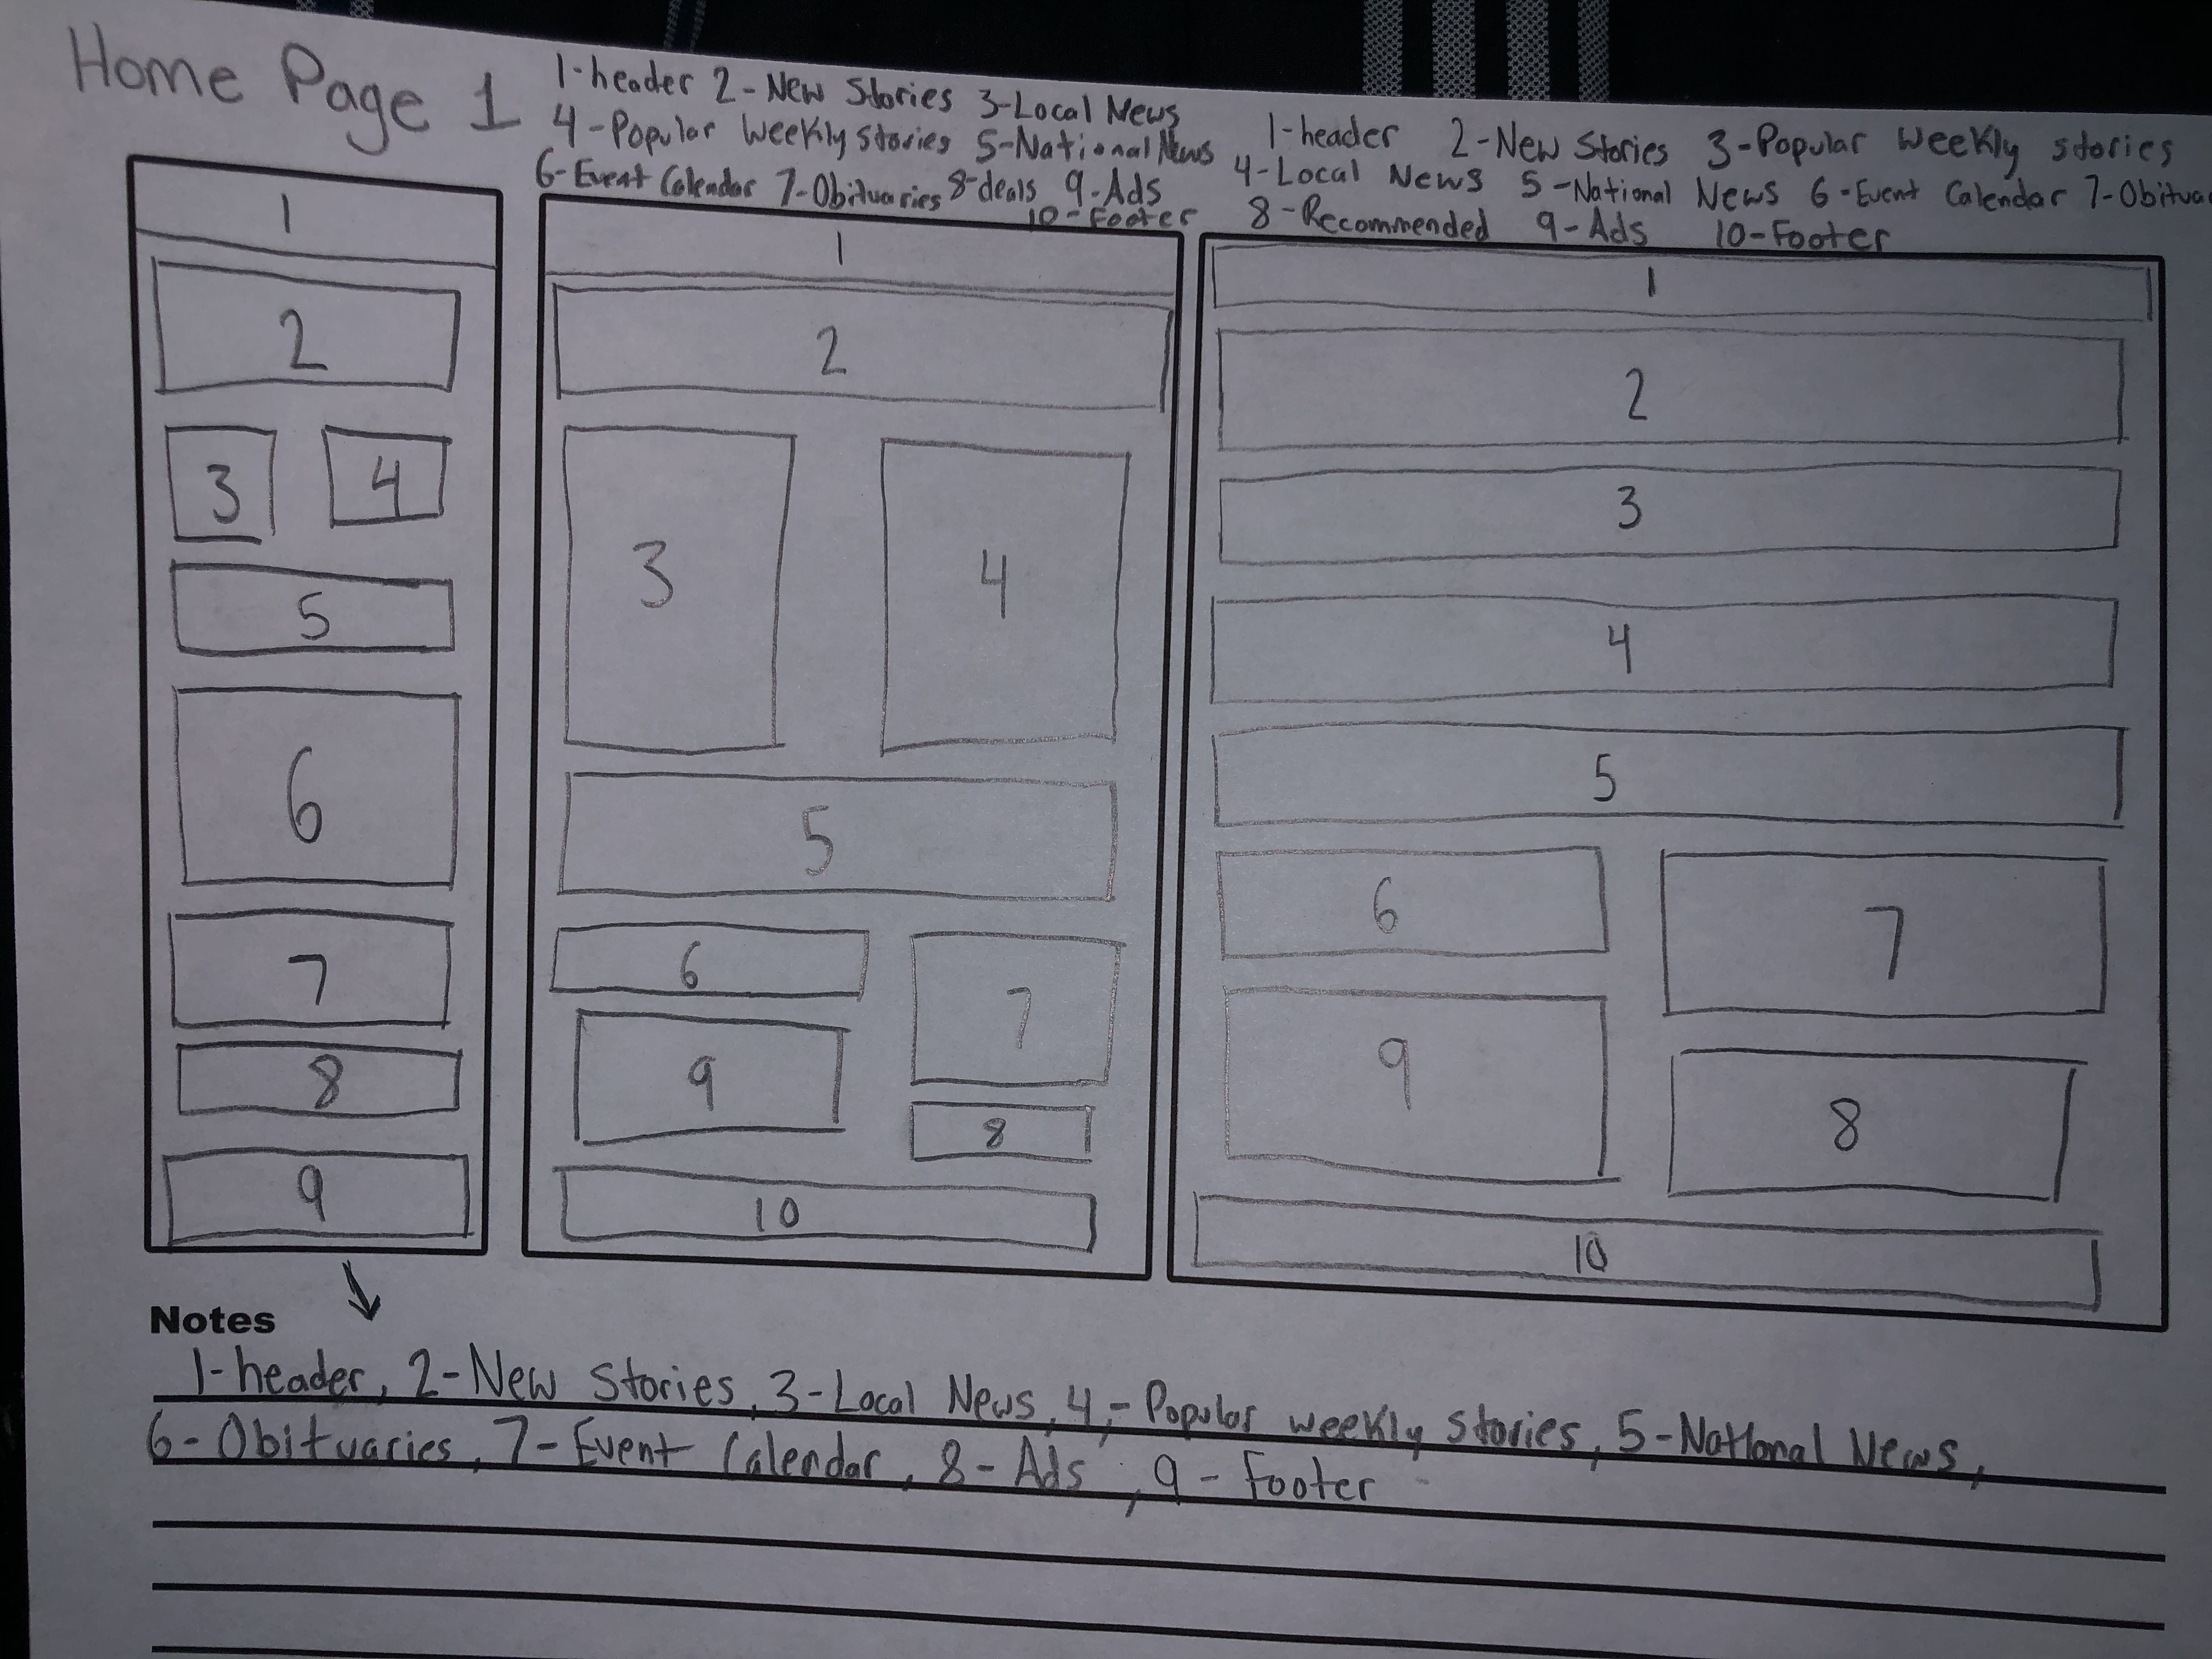 Home Page 1
1-header 2-New Stories 3-Local News
4-Popular Weekly stories 5-National News
6-Event Calendar 7-Obituaries 8-deals 9-Ads
10-Footer
1-header 2-New Stories 3-Popular Weekly stories
4-Local News 5-National News 6-Event Calendar 7-Obitua
8-Recommended 9-Ads 10-Footer
1
2
3 4
5
6
7
8
9
1
2
3 4
5
6
7
9
8
10
1
2
3
4
5
6
7
9
8
10
Notes
1-header, 2-New Stories, 3-Local News, 4,- Popular weekly stories, 5-National News,
6-Obituaries, 7-Event Calendar, 8-Ads, 9-Footer